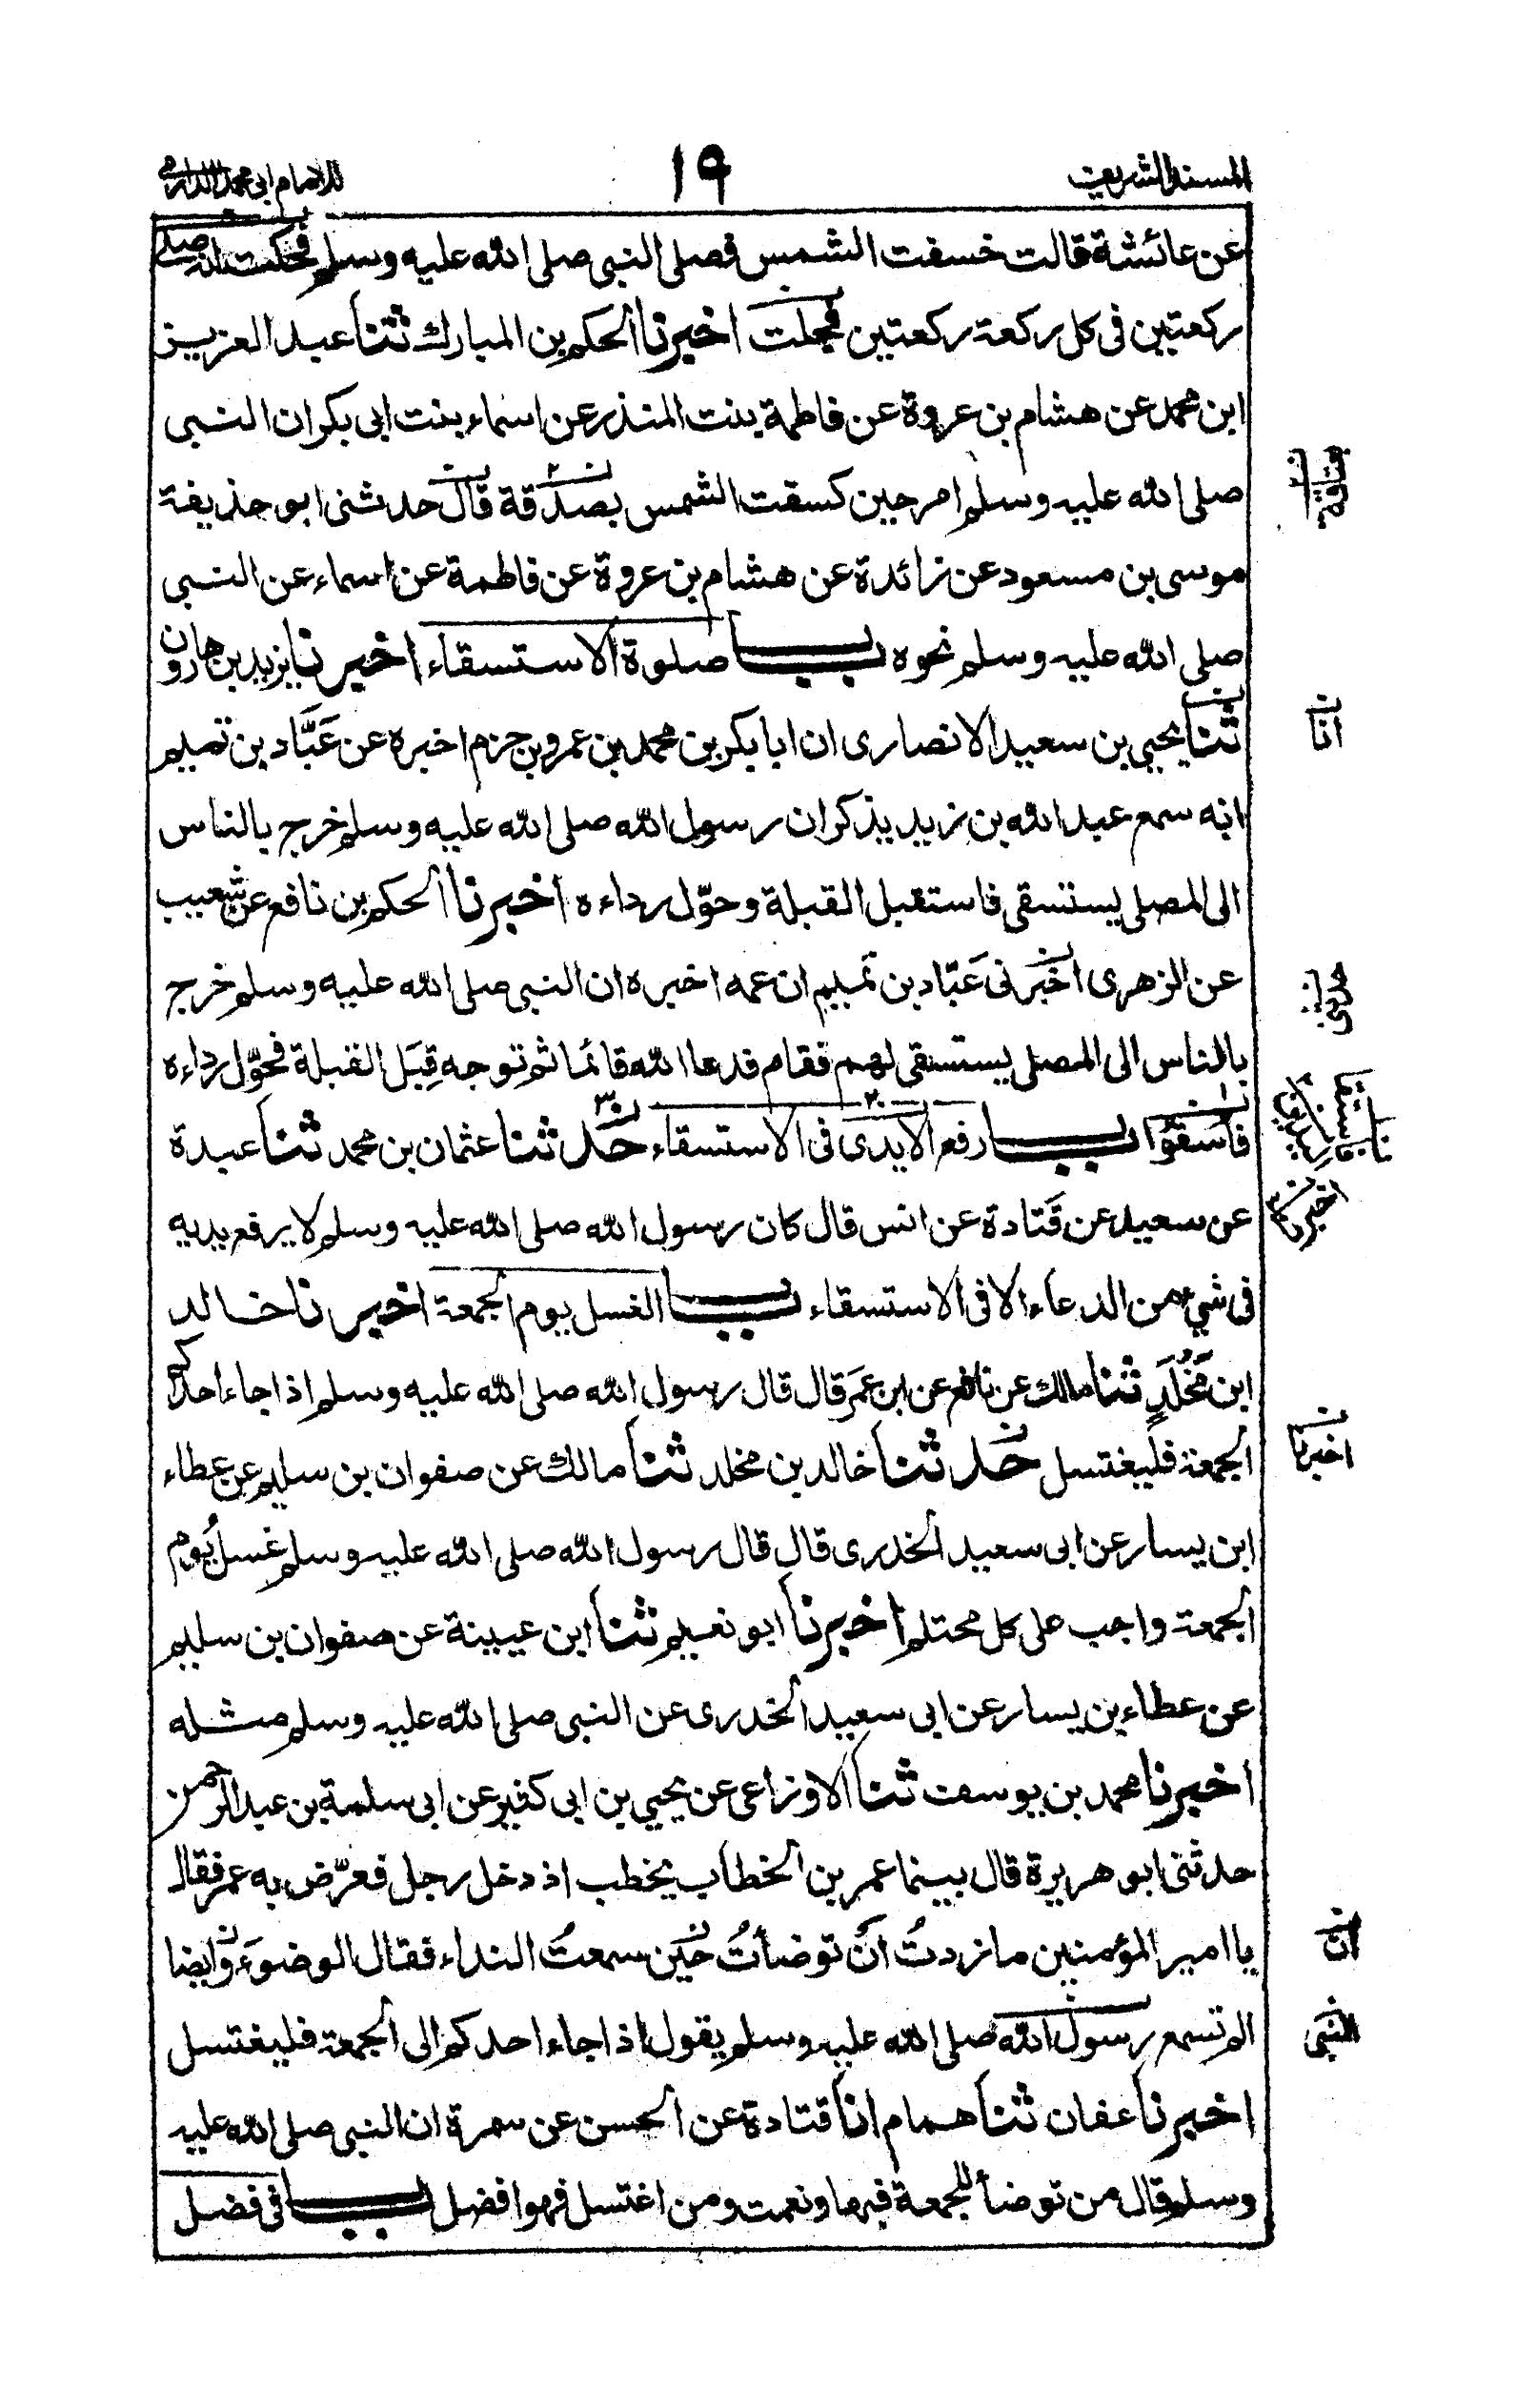 المسند الشريف
١٩
للامام ابى محمد الدارمى
عن عائشة قالت خسفت الشمس فصلى النبى صلى الله عليه وسلم فحكت انه صلى
ركعتين فى كل ركعة ركعتين فجلت اخبرنا الحكم بن المبارك ثنا عبد العزيز
ابن محمد عن هشام بن عروة عن فاطمة بنت المنذر عن اسماء بنت ابى بكر ان النبى
صلى الله عليه وسلم امر حين كسفت الشمس بصدقة قال حدثنى ابو حذيفة
موسى بن مسعود عن زائدة عن هشام بن عروة عن فاطمة عن اسماء عن النبى
صلى الله عليه وسلم نحوه باب صلوة الاستسقاء اخبرنا يزيد بن هارون
ثنا يحيى بن سعيد الانصارى ان ابا بكر بن محمد بن عمرو بن حزم اخبره عن عَبَّاد بن تميم
انا
انه سمع عبد الله بن زيد يذكر ان رسول الله صلى الله عليه وسلم خرج بالناس
الى المصلى يستسقى فاستقبل القبلة وحوّل رداءه اخبرنا الحكم بن نافع عن شعيب
عن الزهرى اخبرنى عَبّاد بن تميم ان عمه اخبره ان النبى صلى الله عليه وسلم خرج
حدثنى
بالناس الى المصلى يستسقى لهم فقام فدعا الله قائما ثم توجه قِبَل القبلة فحوّل رداءه
فاسقوا باب رفع الايدى فى الاستسقاء حدثنا عثمان بن محمد ثنا عبدة
عن سعيد عن قَتادة عن انس قال كان رسول الله صلى الله عليه وسلم لا يرفع يديه
اخبرنا
فى شىء من الدعاء الا فى الاستسقاء باب الغسل يوم الجمعة اخبرنا خالد
ابن مَخْلَدٍ ثنا مالك عن نافع عن ابن عمَر قال قال رسول الله صلى الله عليه وسلم اذا جاء احدكم
الجمعة فليغتسل حدثنا خالد بن مخلد ثنا مالك عن صفوان بن سليم عن عطاء
اخبرنا
ابن يسار عن ابى سعيد الخدرى قال قال رسول الله صلى الله عليه وسلم غسل يوم
الجمعة واجب على كل محتلم اخبرنا ابو نعيم ثنا ابن عيينة عن صفوان بن سليم
عن عطاء بن يسار عن ابى سعيد الخدرى عن النبى صلى الله عليه وسلم مثله
اخبرنا محمد بن يوسف ثنا الاوزاعى عن يحيى بن ابى كثير عن ابى سلمة بن عبد الرحمن
حدثنى ابو هريرة قال بينما عمر بن الخطاب يخطب اذ دخل رجل فعرّض به عمر فقال
يا امير المؤمنين ما زدتُ ان توضأتُ حين سمعتُ النداء فقال الوضوءَ وايضا
ان
الم تسمع رسول الله صلى الله عليه وسلم يقول اذا جاء احدكم الى الجمعة فليغتسل
النبى
اخبرنا عفان ثنا همام انا قتادة عن الحسن عن سمرة ان النبى صلى الله عليه
وسلم قال من توضأ للجمعة فبها ونعمت ومن اغتسل فهو افضل باب فى فضل